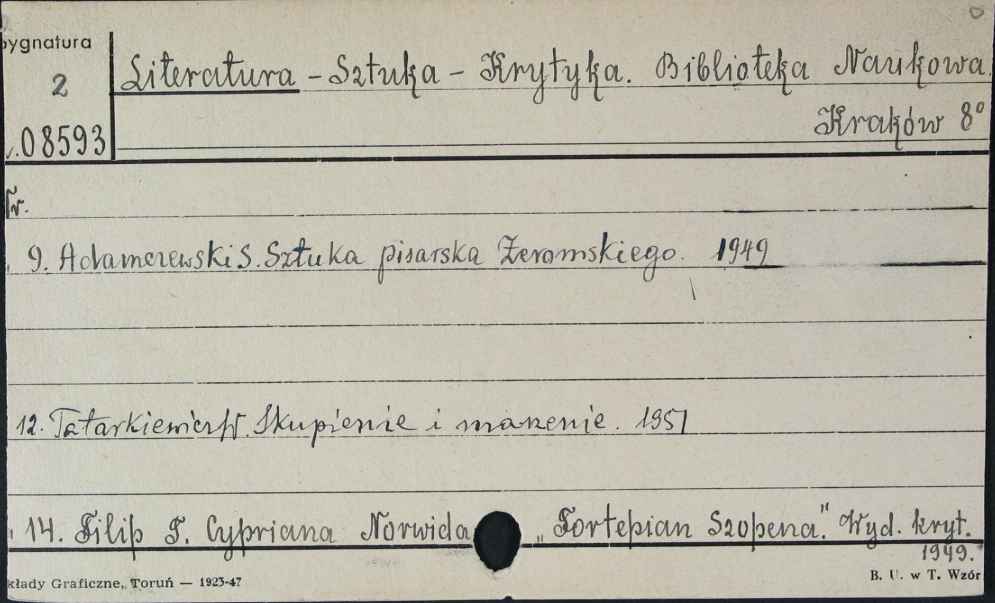 Sygnatura
2
Literatura – Sztuka – Krytyka. Biblioteka Naukowa.
Kraków 8°
08593
Nr.
9. Adamczewski S. Sztuka pisarska Żeromskiego. 1949
12. Tatarkiewicz W. Skupienie i marzenie. 1951
14. Filip T. Cypriana Norwida „Fortepian Szopena." Wyd. kryt.
1949.
kłady Graficzne, Toruń — 1923-47
B. U. w T. Wzór